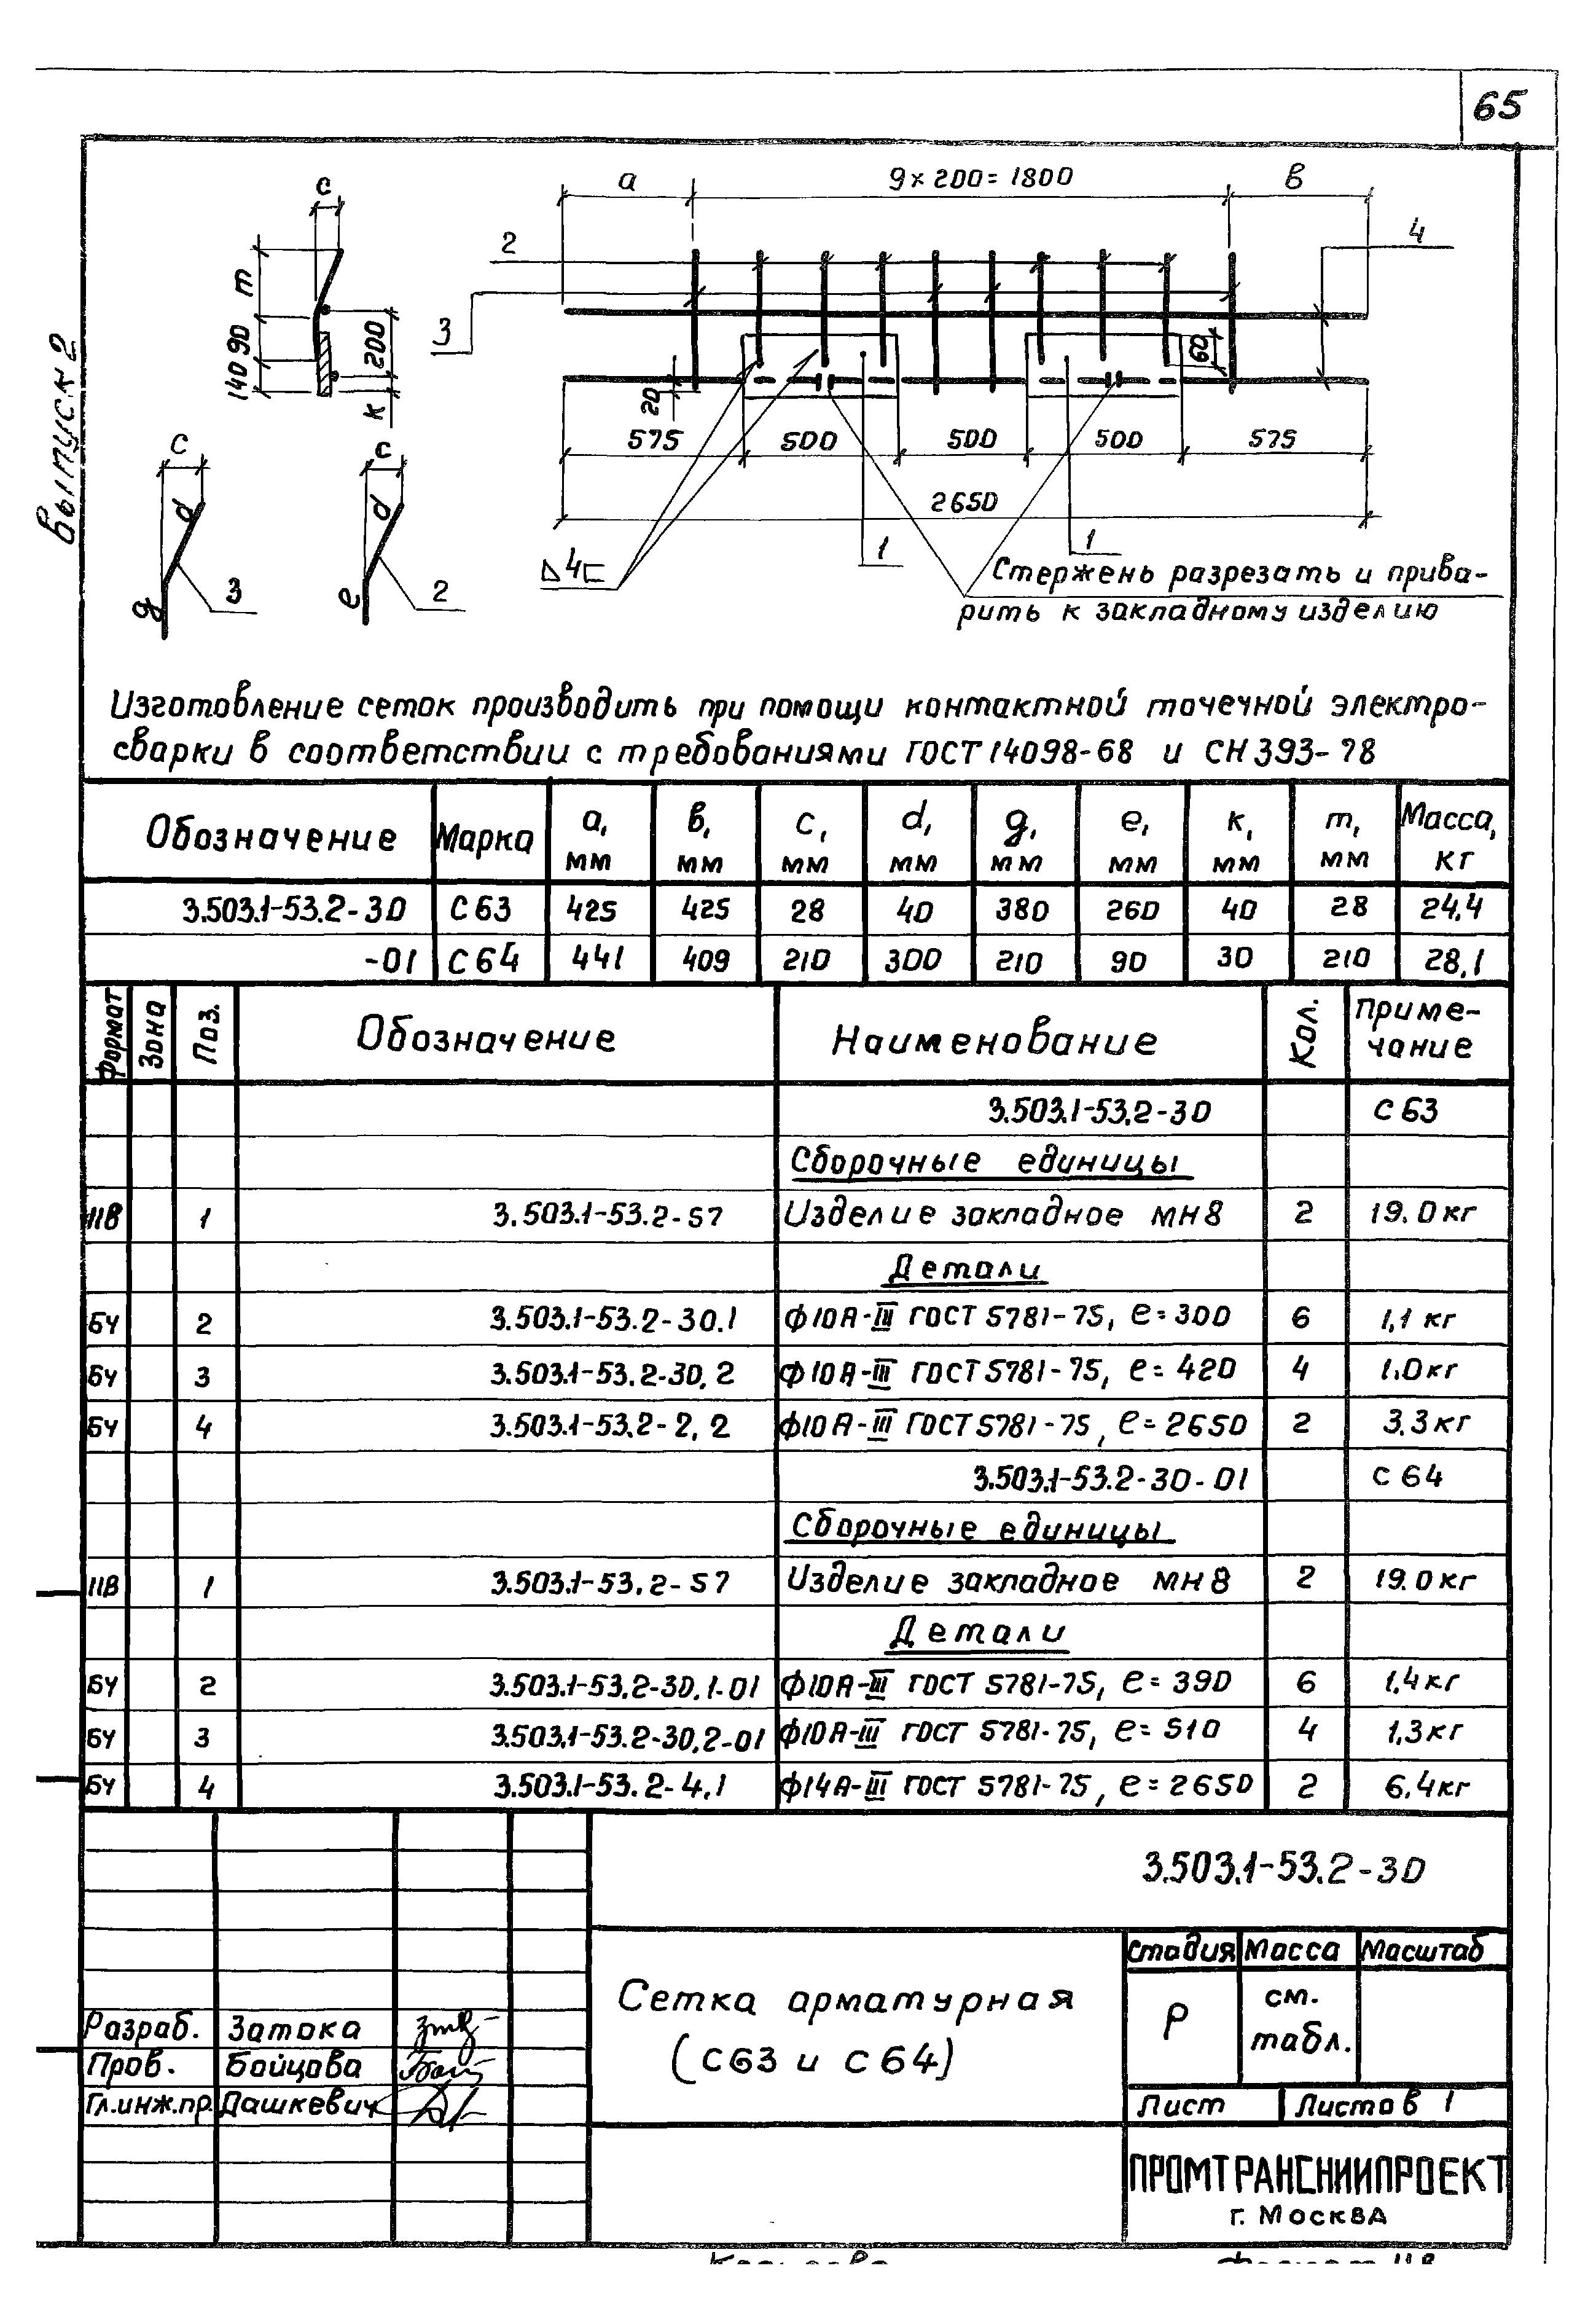 65
Выпуск 2
c
m
90
140
200
к
a
9×200=1800
в
2
3
4
20
60
575
500
500
500
575
2650
4
1
1
c
d
g
3
c
d
e
2
Стержень разрезать и прива-
рить к закладному изделию
Изготовление сеток производить при помощи контактной точечной электро-
сварки в соответствии с требованиями ГОСТ 14098-68 и СН 393-78
Обозначение Марка a, мм в, мм c, мм d, мм g, мм e, мм к, мм m, мм Масса, кг
3.503.1-53.2-30 С63 425 425 28 40 380 260 40 28 24,4
-01 С64 441 409 210 300 210 90 30 210 28,1
Формат Зона Поз. Обозначение Наименование Кол. Приме-
чание
3.503.1-53.2-30 С63
Сборочные единицы
11В 1 3.503.1-53.2-57 Изделие закладное МН8 2 19.0кг
Детали
БЧ 2 3.503.1-53.2-30.1 ф10А-III ГОСТ 5781-75, ℓ=300 6 1,1 кг
БЧ 3 3.503.1-53.2-30.2 ф10А-III ГОСТ 5781-75, ℓ=420 4 1.0кг
БЧ 4 3.503.1-53.2-2.2 ф10А-III ГОСТ 5781-75, ℓ=2650 2 3.3кг
3.503.1-53.2-30-01 С64
Сборочные единицы
11В 1 3.503.1-53.2-57 Изделие закладное МН8 2 19.0кг
Детали
БЧ 2 3.503.1-53.2-30.1-01 ф10А-III ГОСТ 5781-75, ℓ=390 6 1,4кг
БЧ 3 3.503.1-53.2-30.2-01 ф10А-III ГОСТ 5781-75, ℓ=510 4 1,3кг
БЧ 4 3.503.1-53.2-4.1 ф14А-III ГОСТ 5781-75, ℓ=2650 2 6,4кг
3.503.1-53.2-30
Сетка арматурная
(С63 и С64)
Стадия Масса Масштаб
Р см.
табл.
Лист Листов 1
Разраб. Затока
Пров. Бойцова
Гл.инж.пр. Дашкевич
ПРОМТРАНСНИИПРОЕКТ
г. Москва